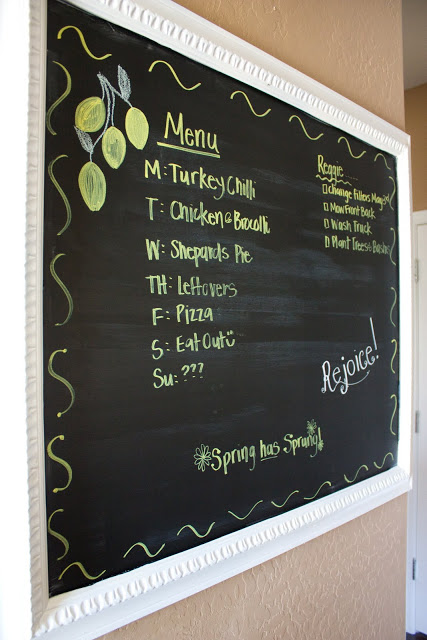 Menu
M: Turkey Chilli
T: Chicken & Brocolli
W: Shepards Pie
TH: Leftovers
F: Pizza
S: Eat Out
Su: ???
Reggie
Change Filters
Mow Front Back
Wash Truck
Plant Trees &
Rejoice!
Spring has Sprung!